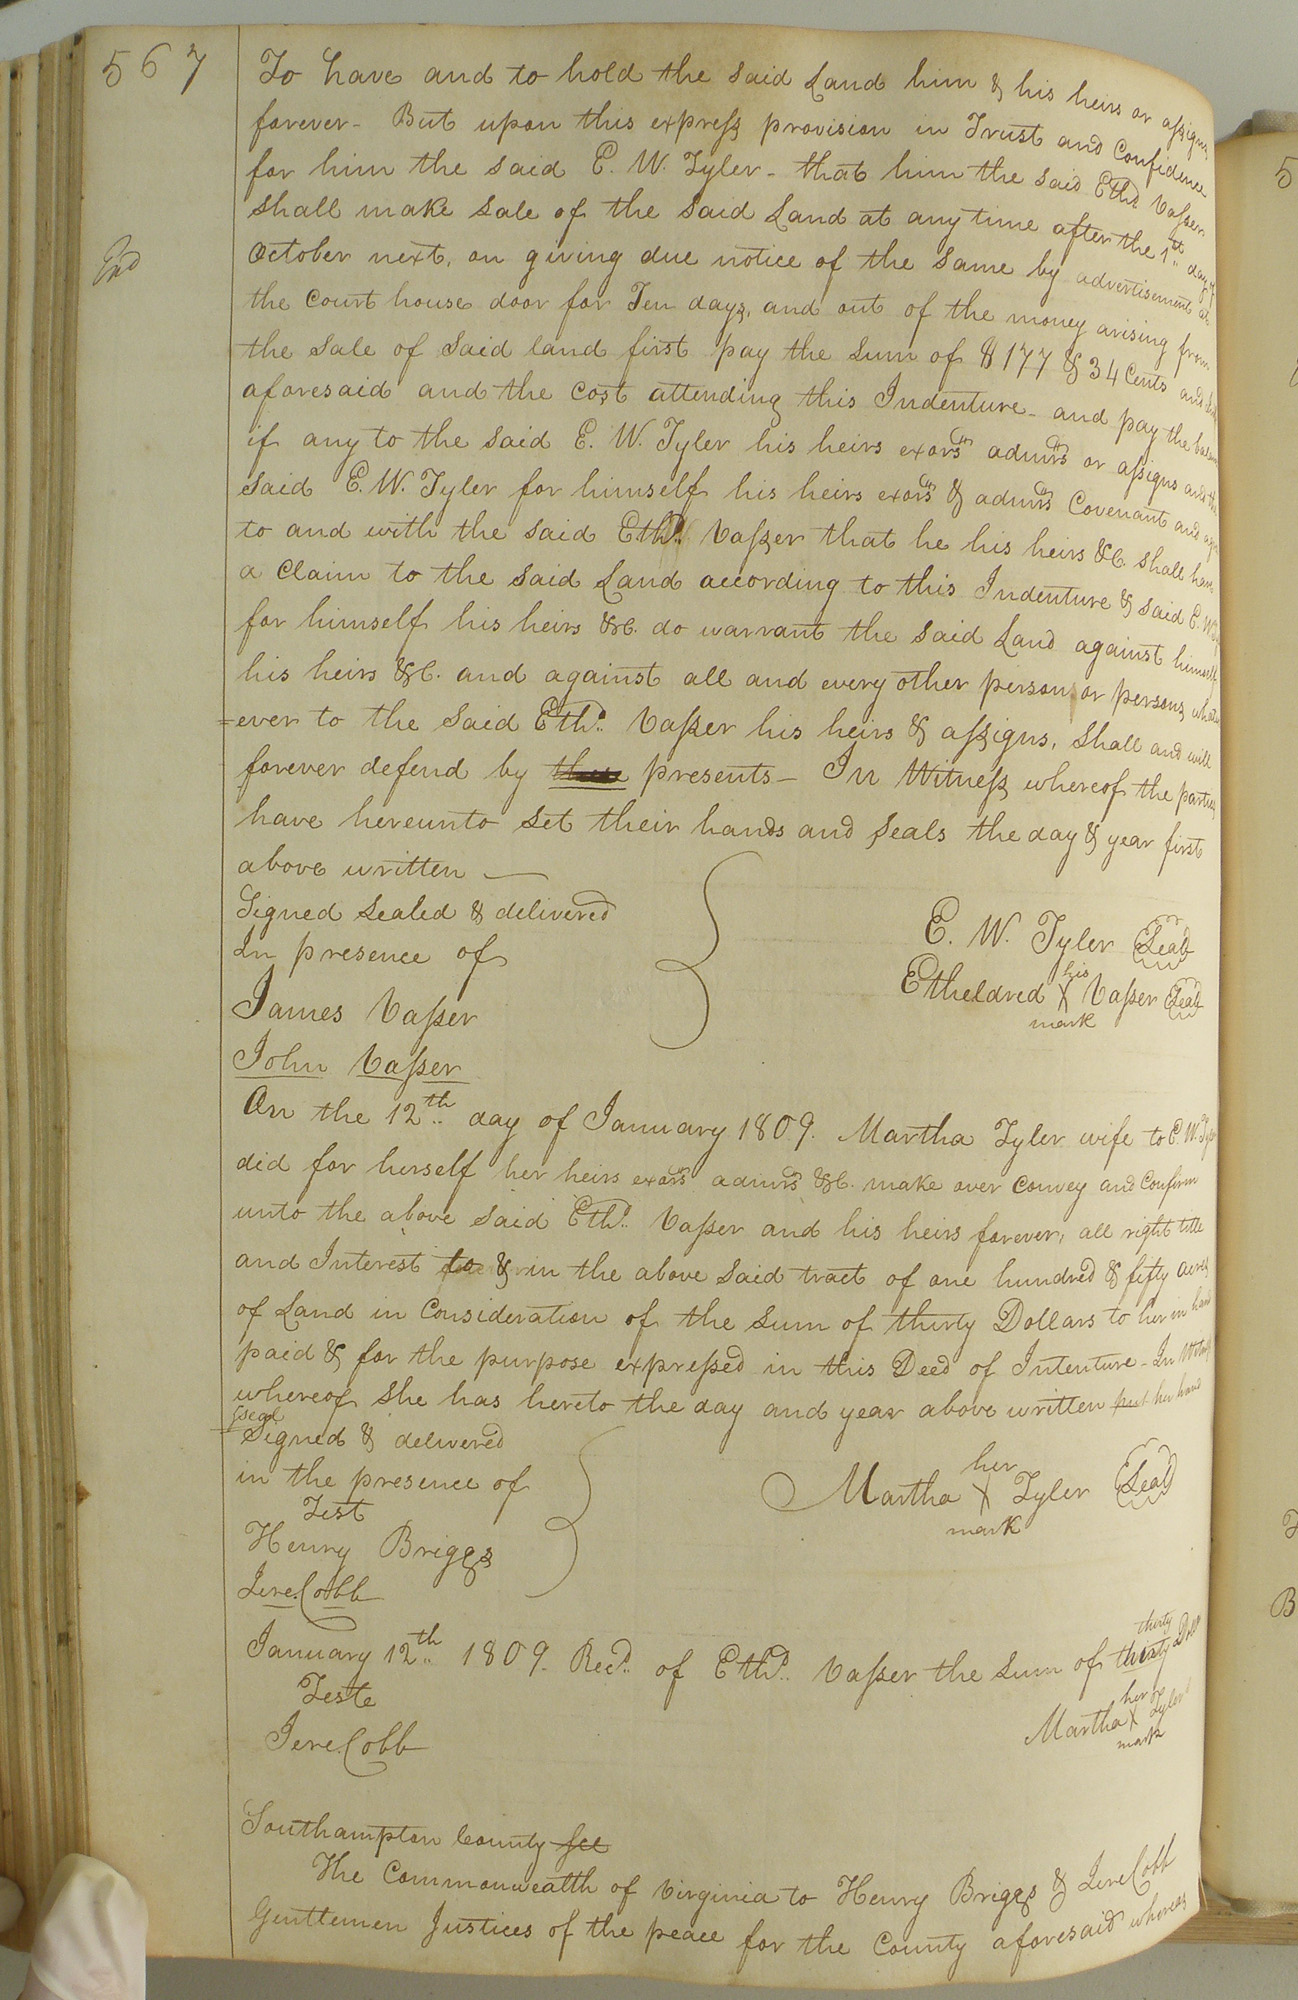 567
To have and to hold the said Land him & his heirs or assigns
forever - But upon this express provision in Trust and Confidence
for him the said E. W. Tyler - that him the said Ethd. Vasser
shall make sale of the said Land at any time after the 1st. day of
October next, on giving due notice of the same by advertisement at
End
the Court house door for Ten days, and out of the money arising from
the sale of said land first pay the sum of $177 & 34 Cents and
aforesaid and the Cost attending this Indenture - and pay the balance
if any to the said E. W. Tyler his heirs exors. admrs. or assigns and the
said E. W. Tyler for himself his heirs exors. & admrs. Covenant and agree
to and with the said Ethd. Vasser that he his heirs &C. shall have
a Claim to the said Land according to this Indenture & said E. W. Tyler
for himself his heirs &C. do warrant the said Land against himself
his heirs &C. and against all and every other person or persons whatso
=ever to the said Ethd. Vasser his heirs & assigns, shall and will
forever defend by these presents - In Witness whereof the parties
have hereunto set their hands and seals the day & year first
above written —
Signed Sealed & delivered
In presence of
James Vasser
John Vasser
E. W. Tyler Seal
his
Etheldred X Vasser Seal
mark
On the 12th. day of January 1809. Martha Tyler wife to E. W. Tyler
did for herself her heirs exors. admrs. &C. make over Convey and Confirm
unto the above said Ethd. Vasser and his heirs forever, all right title
and Interest to & in the above said tract of one hundred & fifty acres
of Land in Consideration of the sum of thirty Dollars to her in hand
paid & for the purpose expressed in this Deed of Intenture - In Witness
whereof she has hereto the day and year above written put her hand
& seal
Signed & delivered
in the presence of
Test
Henry Briggs
Jere. Cobb
her
Martha X Tyler Seal
mark
thirty
January 12th. 1809. Recd. of Ethd. Vasser the sum of thirty Dolls
Teste
Jere. Cobb
her
Martha X Tyler
mark
Southampton County sct
The Commonwealth of Virginia to Henry Briggs & Jere Cobb
Gentlemen Justices of the peace for the County aforesaid whereas